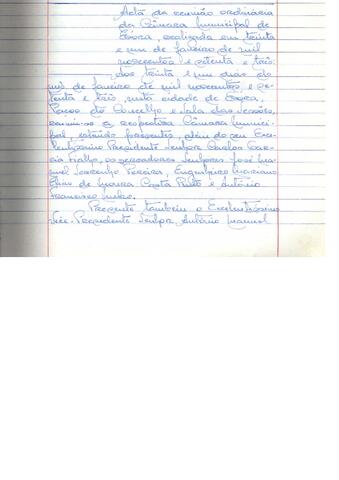 Acta da reunião ordinária
da Câmara Municipal de
Évora, realizada em trinta
e um de Janeiro de mil
novecentos e setenta e três.
Aos trinta e um dias do
mês de Janeiro de mil novecentos e se-
tenta e três, nesta cidade de Évora,
Paços do Concelho e Sala das Sessões,
reuniu-se a respectiva Câmara Munici-
pal, estando presentes, além do seu Exce-
lentíssimo Presidente Senhor Carlos Gar-
cia Fialho, os vereadores Senhores José Ma-
nuel Lourenço Pereira, Engenheiro Mariano
Elias de Moura Costa Pinto e António
Francisco
Presente também o Excelentíssimo
Vice-Presidente Senhor António Manuel